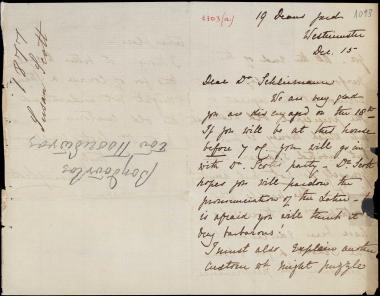 1303(a)
1093
19 Deans Yard
Westminster
Dec. 15
Dear Dr Schliemann
We are very glad
you are disengaged on the 18th.
If you will be at this house
before 7 o/c. you will go in
with Dr Scott's party. Dr Scott
hopes you will pardon the
pronunciation of the Latin –
is afraid you will think it
very barbarous!
I must also explain another
custom wh might puzzle
Susan Scott